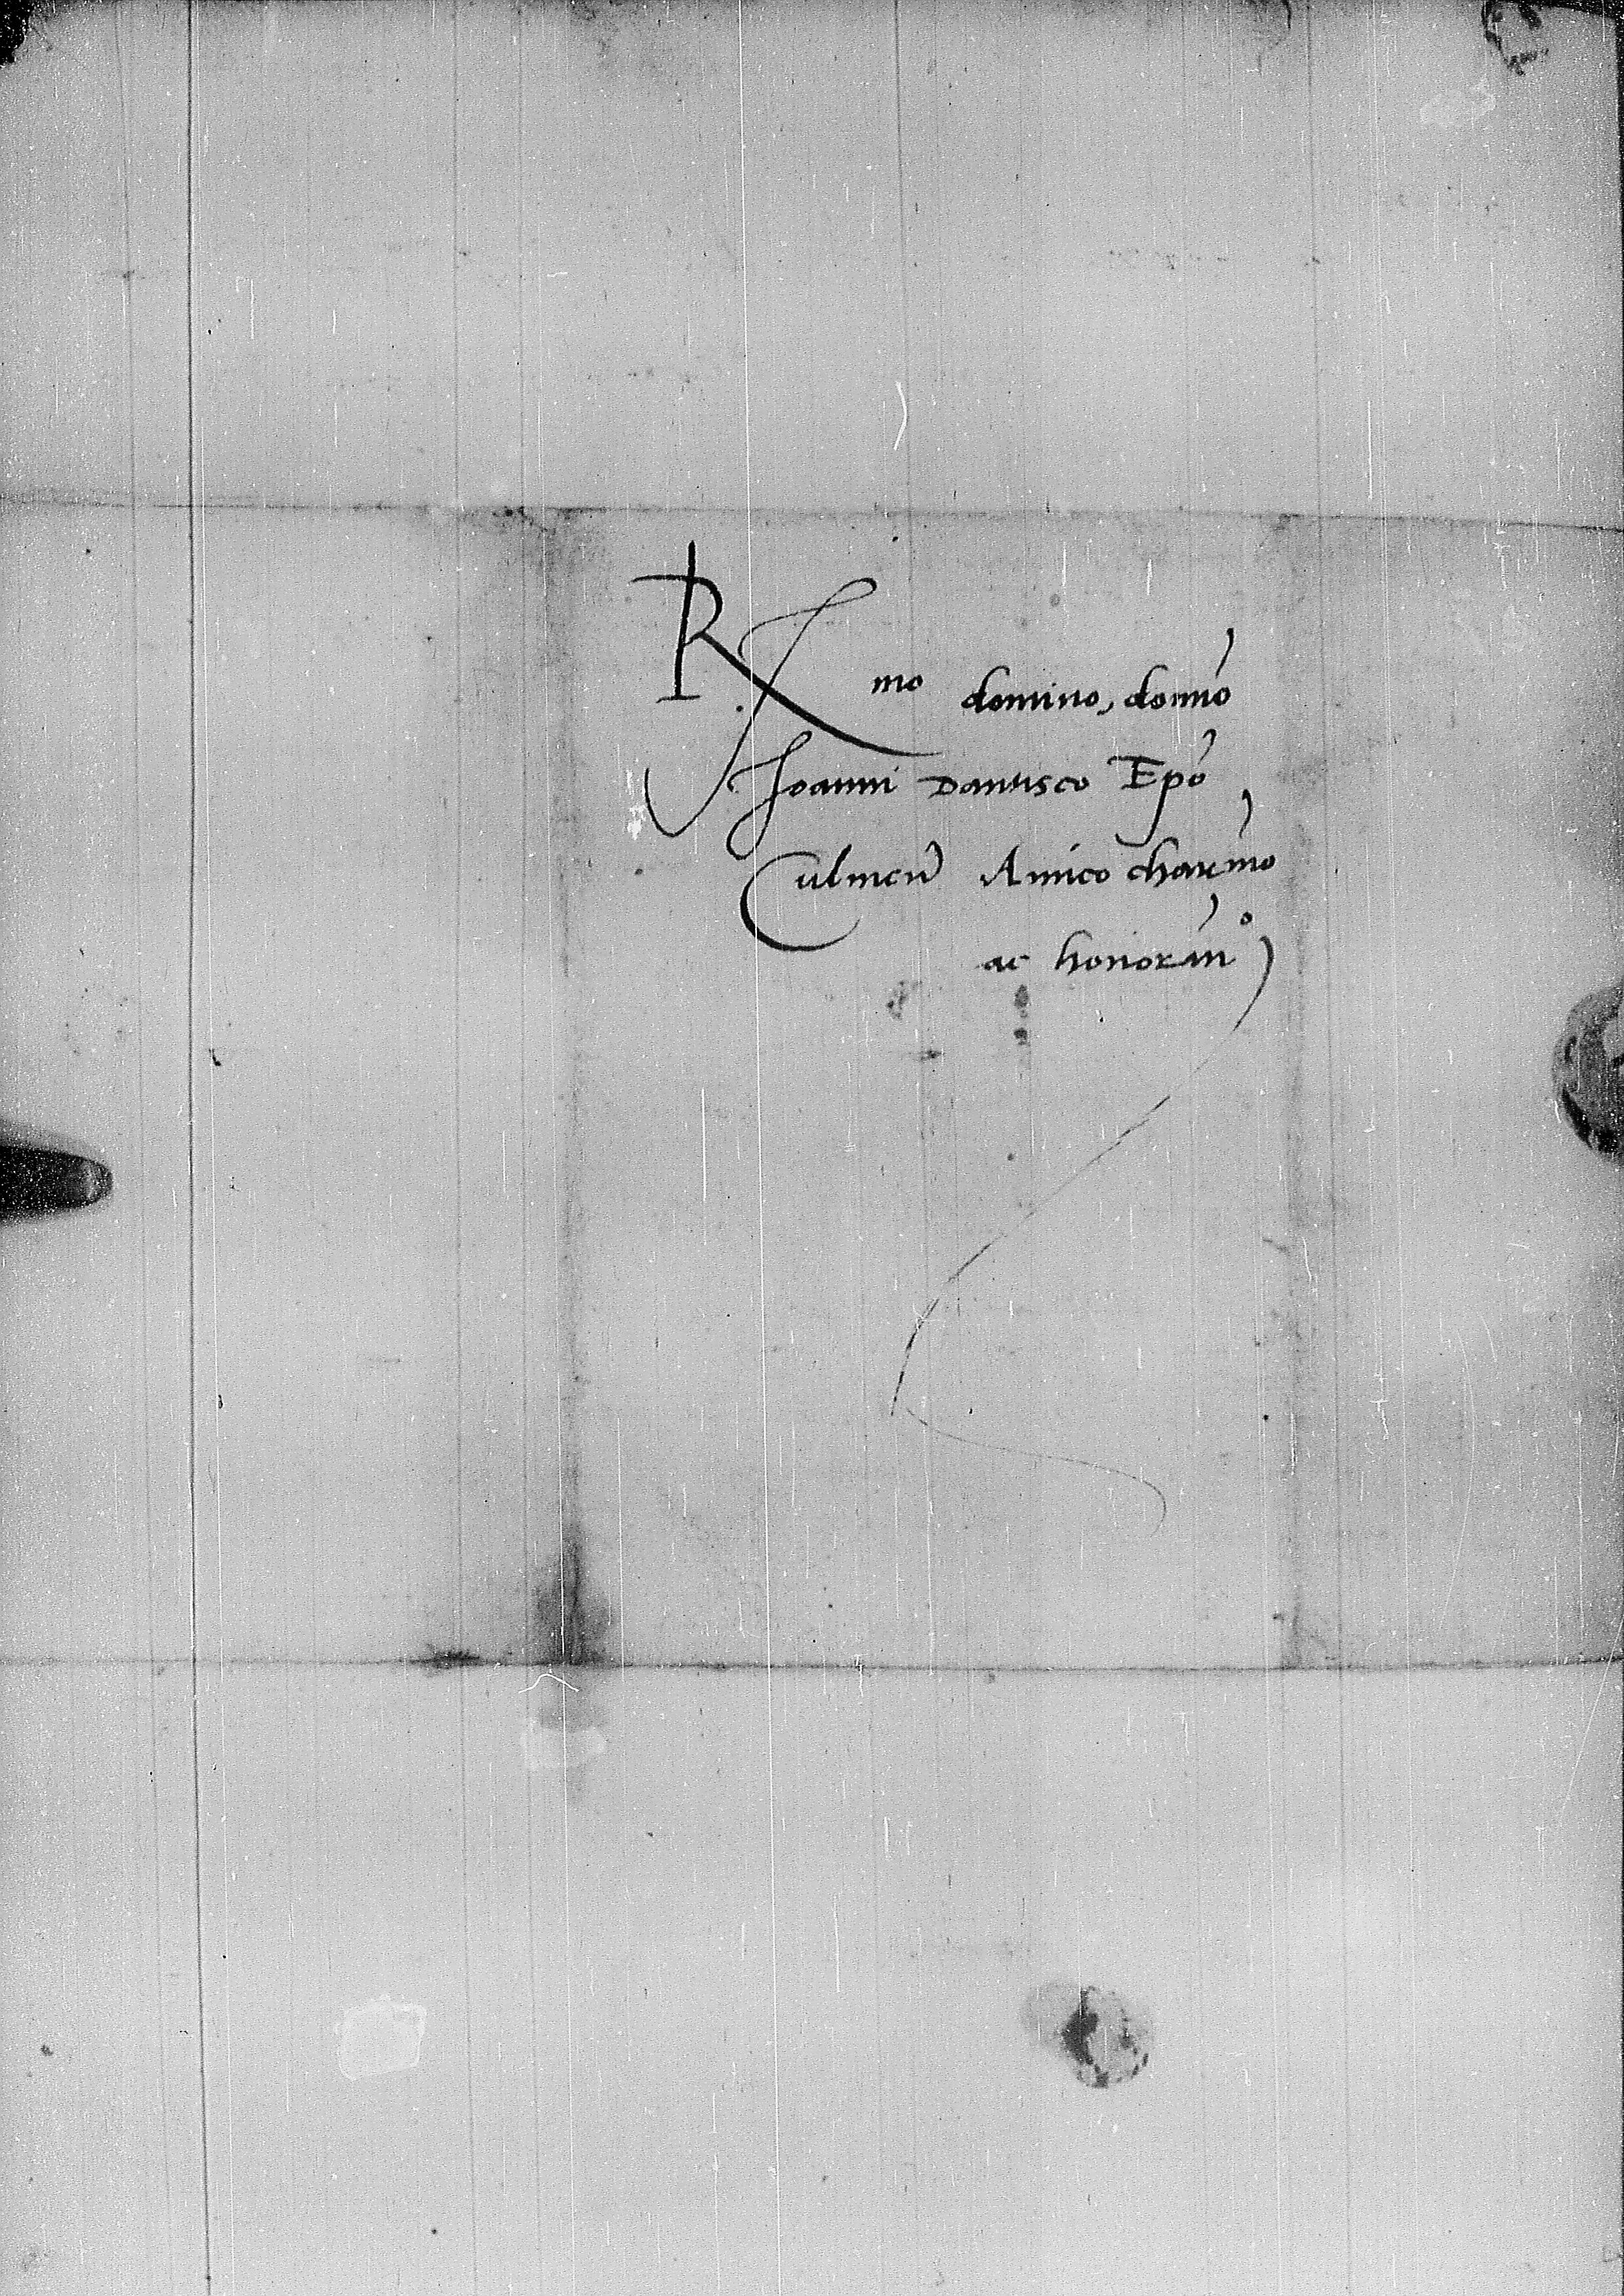 R.mo domino, domno
Joanni Dantisco Epo
Culmen Amico charmo
ac honoran.o